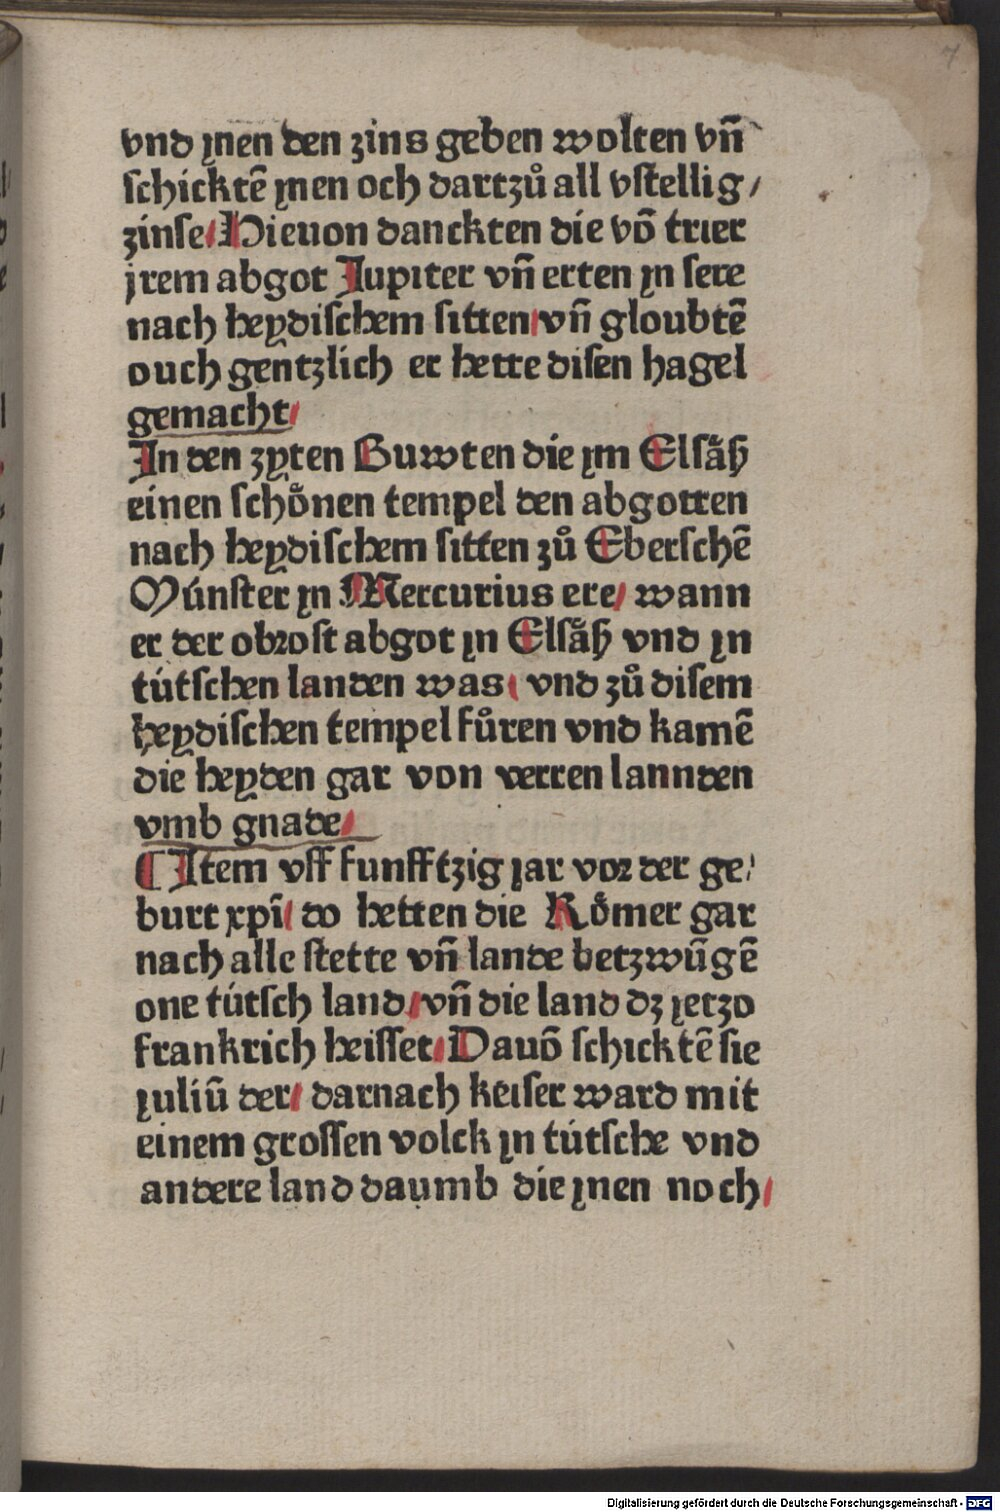 7
vnd ynen den zins geben wolten vn̄
schicktē ynen och dartzů all vſtellig/
zinſe/ Hieuon danckten die vō trier
jrem abgot Jupiter vn̄ erten yn ſere
nach heydiſchem ſitten/ vn̄ gloubtē
ouch gentzlich er hette diſen hagel
gemacht/
In den zyten Buwten die ym Elſåſz
einen ſchönen tempel den abgotten
nach heydiſchem ſitten zů Eberſchē
Múnſter yn Mercurius ere/ wann
er der obꝛoſt abgot yn Elſåſz vnd yn
tútſchen landen was/ vnd zů diſem
heydiſchen tempel fůren vnd kamē
die heyden gar von verren lannden
vmb gnade/
¶ Item vff funfftzig jar voꝛ der ge/
burt xp̄i/ do hetten die Römer gar
nach alle ſtette vn̄ lande betzwūgē
one tútſch land/ vn̄ die land dz yetzo
franckrich heiſſet/ Dauō ſchicktē ſie
juliū der/ darnach keiſer ward mit
einem groſſen volck yn tútſche vnd
andere land daumb die ynen noch/
Digitalisierung gefördert durch die Deutsche Forschungsgemeinschaft - DFG